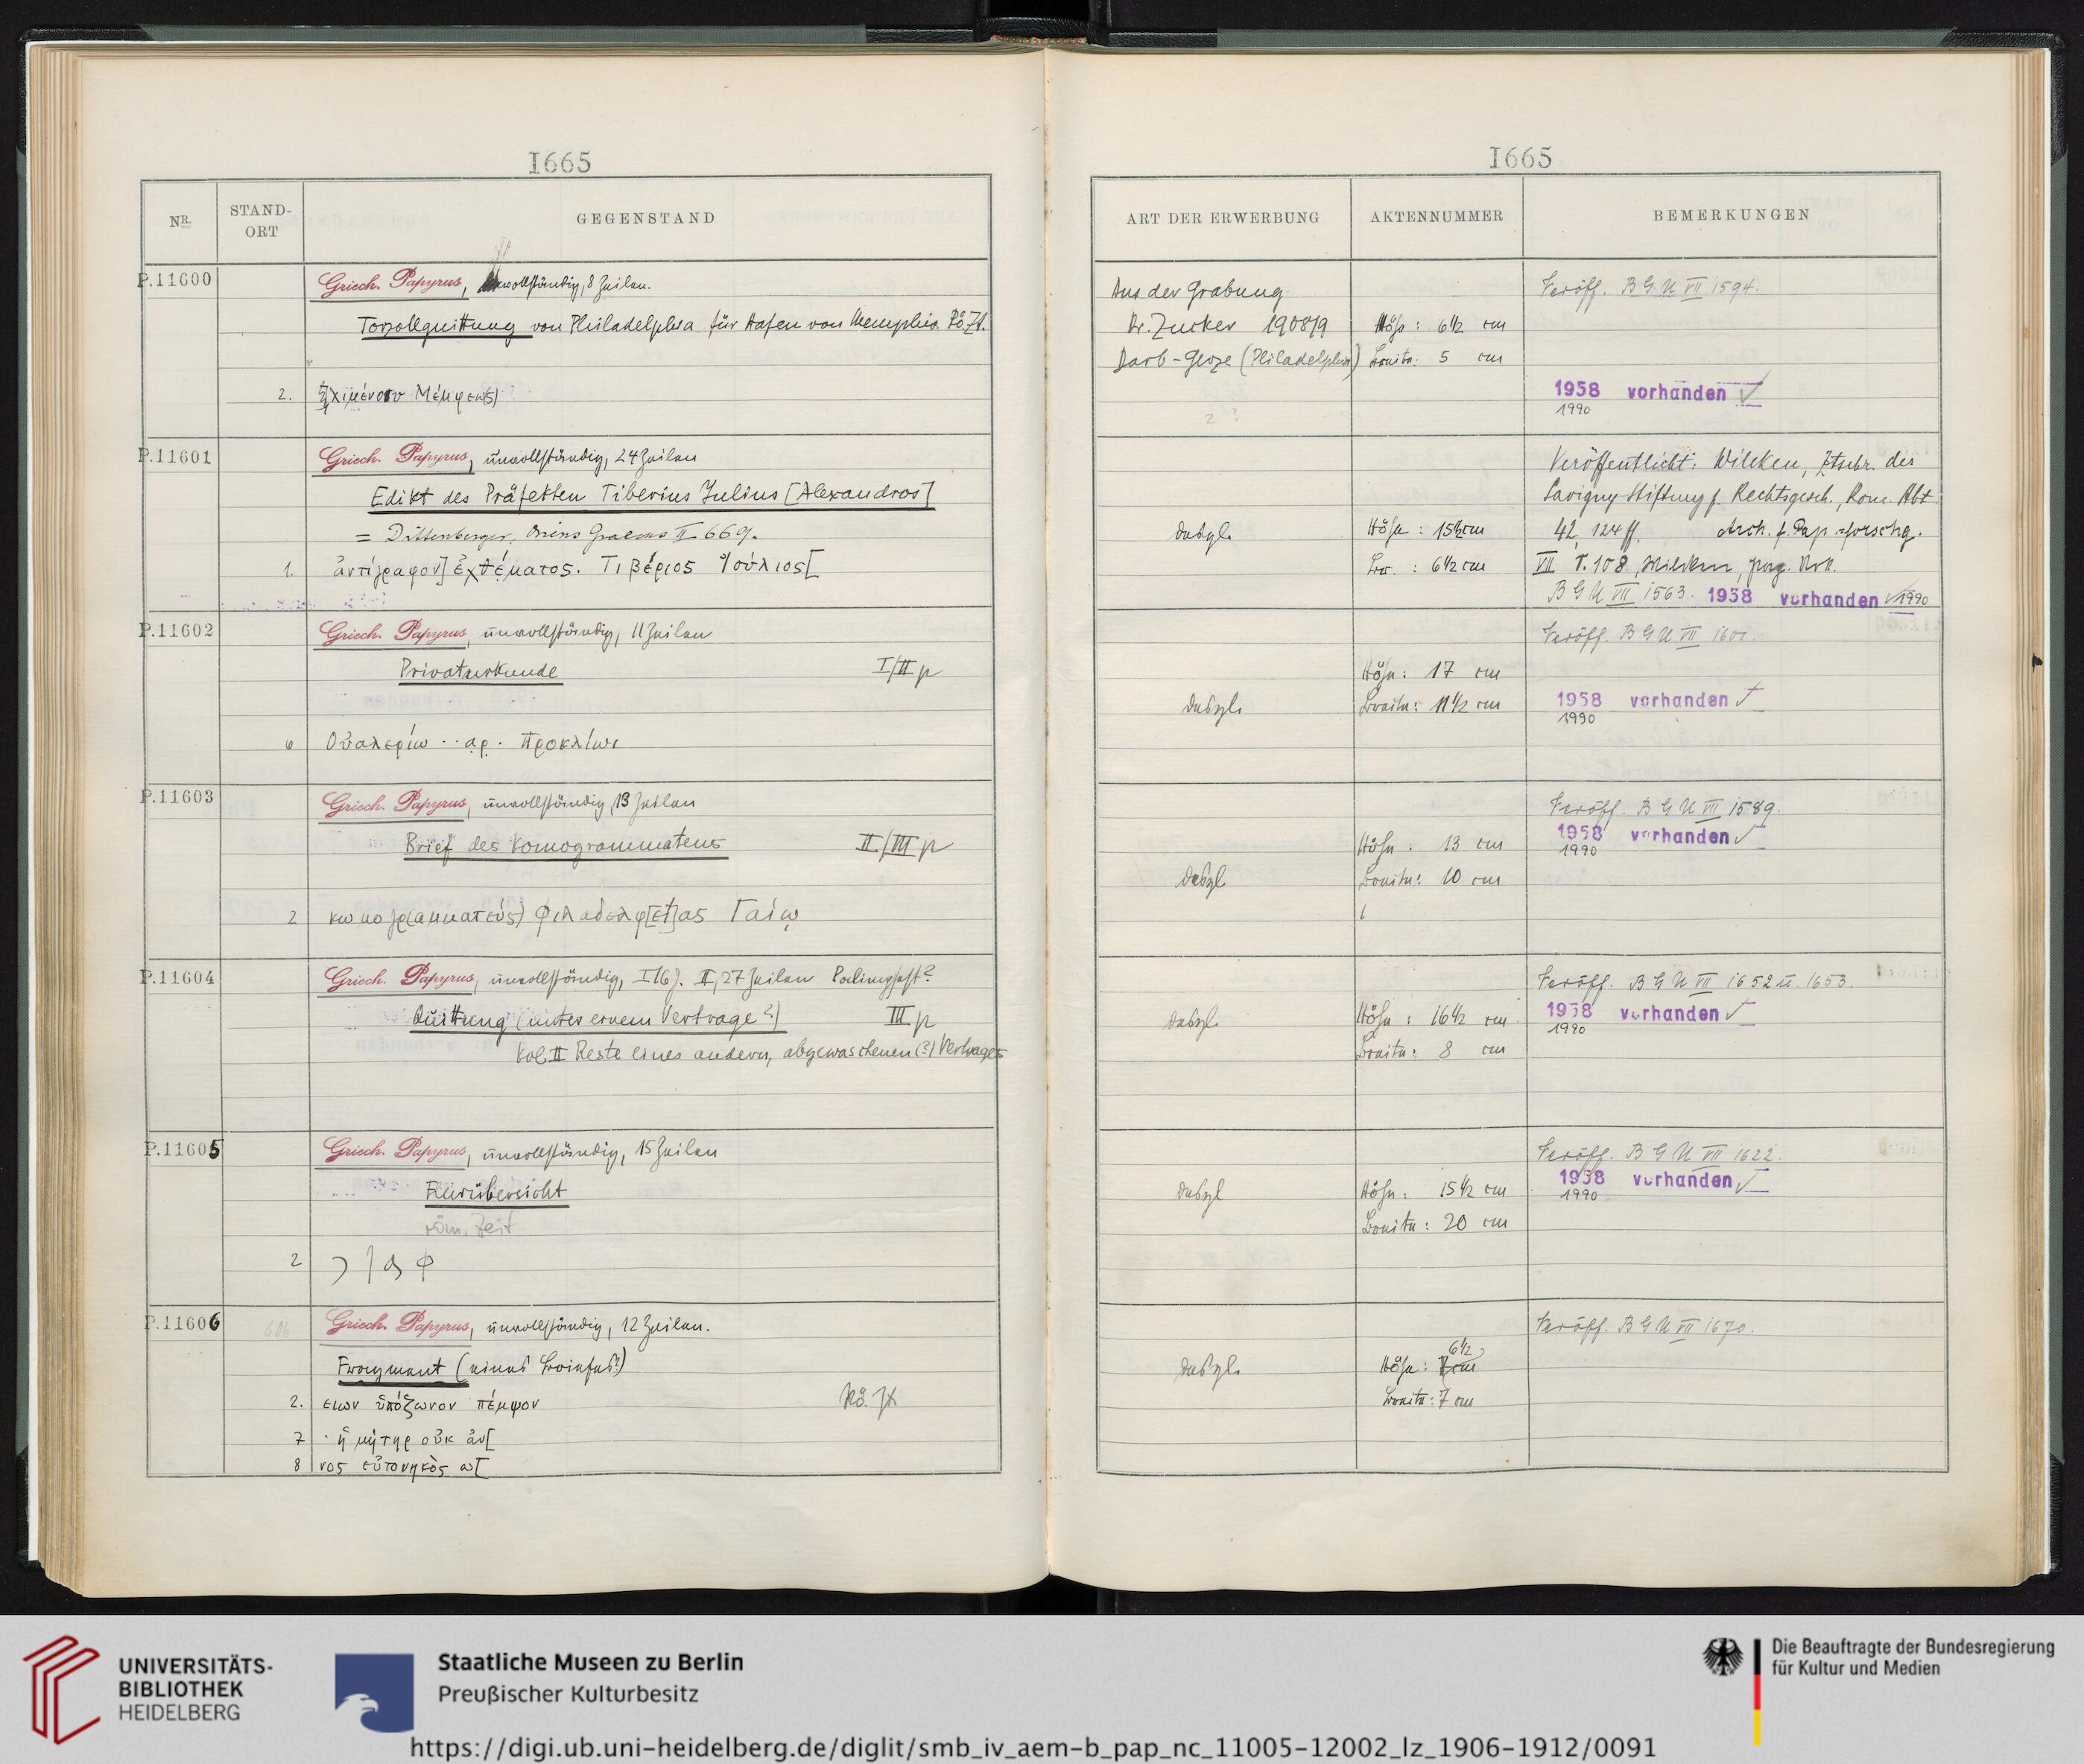 1665
NR.
STAND-ORT
GEGENSTAND
P.11600
Griech. Papyrus, unvollständig, 8 Zeilen.
Torzollquittung von Philadelphia für Hafen von Memphis. Rö. Zt.
2. λιμένος Μέμφεως)
P.11601
Griech. Papyrus, unvollständig, 24 Zeilen
Edikt des Präfekten Tiberius Julius [Alexandros]
= Dittenberger, Oriens Graecus II 669.
1. ἀντίγραφον] ἐχθέματος. Τιβέριος Ἰούλιος[
P.11602
Griech. Papyrus, unvollständig, 11 Zeilen
Privaturkunde I/II p
6 Οὐαλερίω ‥ αρ. Προκλίωι
P.11603
Griech. Papyrus, unvollständig, 13 Zeilen
Brief des Komogrammateus II/III p
2 κωμογρ(αμματεύς) Φιλαδελφ[εί]ας Γαίῳ
P.11604
Griech. Papyrus, unvollständig, I 16 Z. II, 27 Zeilen Palimpsest?
Quittung (unter einem Vertrage?) III p
Kol. II Reste eines andern, abgewaschenen (?) Vertrages
P.11605
Griech. Papyrus, unvollständig, 15 Zeilen
Flurübersicht
röm. Zeit
2
P.11606
606
Griech. Papyrus, unvollständig, 12 Zeilen.
Fragment (eines Briefes?)
2. ειων ὑπόζωνον πέμψον Rö. Zt
7 · ἡ μήτηρ οὐκ ἀν[
8 νος εὐτονηκὸς ω[
1665
ART DER ERWERBUNG
AKTENNUMMER
BEMERKUNGEN
Aus der Grabung
Dr. Zucker 1908/9
Darb-Gerze (Philadelphia)
Höhe: 6½ cm
Breite: 5 cm
Veröff. BGU VII 1594.
1958 vorhanden
1990
2 ?
desgl.
Höhe: 15½ cm
Br.: 6½ cm
Veröffentlicht: Wilcken, Ztschr. der
Savigny Stiftung f. Rechtsgesch., Rom. Abt.
42, 124 ff. Arch. f. Pap. forschg.
VII S. 108
BGU VII 1563. 1958 vorhanden 1990
desgl.
Höhe: 17 cm
Breite: 11½ cm
Veröff. BGU VII 1601.
1958 vorhanden
1990
desgl.
Höhe: 13 cm
Breite: 10 cm
Veröff. BGU VII 1589.
1958 vorhanden
1990
desgl.
Höhe: 16½ cm
Breite: 8 cm
Veröff. BGU VII 1652 u. 1653.
1958 vorhanden
1990
desgl.
Höhe: 15½ cm
Breite: 20 cm
Veröff. BGU VII 1622.
1958 vorhanden
1990
desgl.
Höhe: 6½ cm
Breite: 7 cm
Veröff. BGU VII 1670.
UNIVERSITÄTS-
BIBLIOTHEK
HEIDELBERG
Staatliche Museen zu Berlin
Preußischer Kulturbesitz
Die Beauftragte der Bundesregierung
für Kultur und Medien
https://digi.ub.uni-heidelberg.de/diglit/smb_iv_aem-b_pap_nc_11005-12002_lz_1906-1912/0091